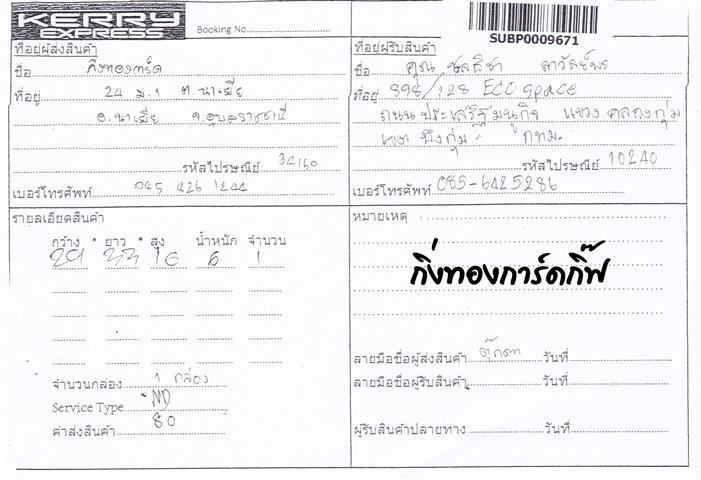 KERRY
EXPRESS
Booking No.
SUBP0009671
ที่อยู่ผู้ส่งสินค้า
ชื่อ กิ่งทองการ์ด
ที่อยู่ 24 ม.1 ต.นาเยีย
อ.นาเยีย จ.อุบลราชธานี
รหัสไปรษณีย์ 34160
เบอร์โทรศัพท์ 045 826 1244
ที่อยู่ผู้รับสินค้า
ชื่อ คุณ
ที่อยู่ 898/128 ECO space
ถนน ประเสริฐมนูกิจ แขวง คลองกุ่ม
เขต บึงกุ่ม กทม.
รหัสไปรษณีย์ 10240
เบอร์โทรศัพท์ 085-6425286
รายละเอียดสินค้า
กว้าง * ยาว * สูง น้ำหนัก จำนวน
29 33 16 6 1
จำนวนกล่อง 1 กล่อง
Service Type ND
ค่าส่งสินค้า 80
หมายเหตุ
กิ่งทองการ์ดกิ๊ฟ
ลายมือชื่อผู้ส่งสินค้า ตุ๊กตา วันที่
ลายมือชื่อผู้รับสินค้า วันที่
ผู้รับสินค้าปลายทาง วันที่